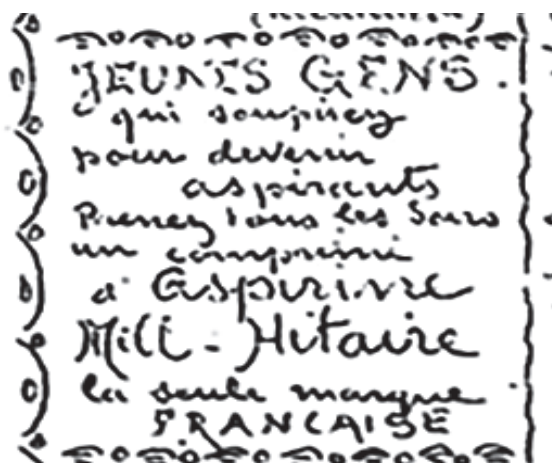 JEUNES GENS.
qui soupirez
pour devenir
aspirants
Prenez tous les soirs
un comprimé
d'Aspirine
Mili-Hitaire
la seule marque
FRANCAISE